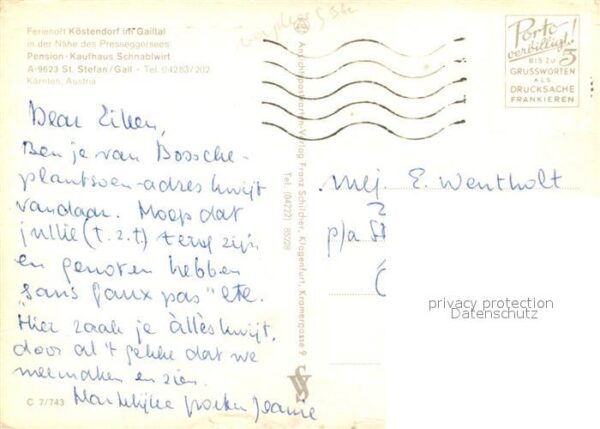 Ferienort Köstendorf im Gailtal
in der Nähe des Presseggersees
Pension-Kaufhaus Schnablwirt
A-9623 St. Stefan/Gail - Tel. 04283/202
Kärnten, Austria
Porto
verbilligt!
BIS ZU 5
GRUSSWORTEN
ALS
DRUCKSACHE
FRANKIEREN
Dear
Ben je van Bossche-
plantsoen-adres kwijt
vandaar. Hoop dat
jullie (t.z.t) terug zijn
en genoten hebben
"sans faux pas" etc.
Hier raak je àlles kwijt,
door al 't gekke dat we
meemaken en zien.
Hartelijke groeten Jeanie
C 7/743
Ansichtpostkarten-Verlag Franz Schilcher, Klagenfurt, Kramergasse 9
Tel. (04222) 85028
mej. E. Wentholt
p/a
privacy protection
Datenschutz